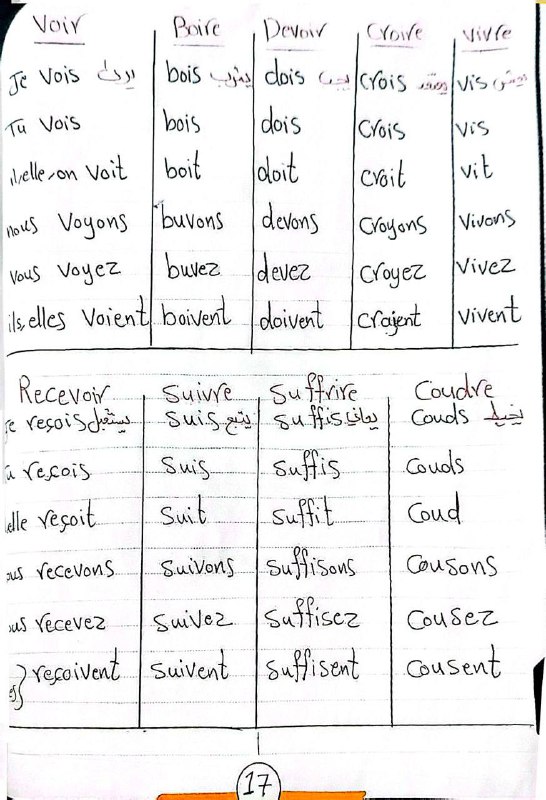 Voir Boire Devoir Croire Vivre
Je Vois يرى bois يشرب dois يجب crois يعتقد vis يعيش
Tu Vois bois dois crois vis
il,elle,on Voit boit doit croit vit
nous Voyons buvons devons croyons Vivons
vous Voyez buvez devez croyez Vivez
ils,elles Voient boivent doivent craient vivent
Recevoir Suivre Suffrire Coudre
e reçois يستقبل Suis يتبع suffis يعاني Couds يخيط
u reçois Suis suffis Couds
elle reçoit Suit suffit Coud
ous recevons Suivons Suffisons Cousons
ous recevez Suivez Suffisez Cousez
es} reçoivent Suivent Suffisent Cousent
17